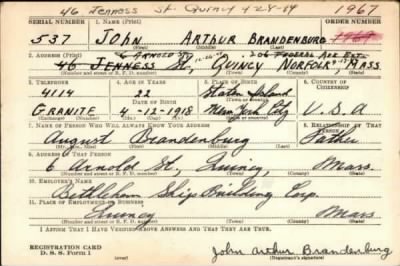 46 Jenness St. Quincy 4-24-49 1967
SERIAL NUMBER 1. NAME (Print) ORDER NUMBER
537 JOHN ARTHUR BRANDENBURG 1968
(First) (Middle) (Last)
6 ARNOLD ST 206 FEDERAL AVE EXT.
2. ADDRESS (Print)
46 JENNESS ST., QUINCY NORFOLK MASS.
(Number and street or R. F. D. number) (Town) (County) (State)
3. TELEPHONE 4. AGE IN YEARS 5. PLACE OF BIRTH 6. COUNTRY OF CITIZENSHIP
4114 22 Staten Island
DATE OF BIRTH (Town or county)
GRANITE 4-13-1918 New York City U.S.A
(Exchange) (Mo.) (Day) (Yr.) (State or country)
7. NAME OF PERSON WHO WILL ALWAYS KNOW YOUR ADDRESS 8. RELATIONSHIP OF THAT PERSON
August Brandenburg Father
(Mr., Mrs., Miss) (First) (Middle) (Last)
9. ADDRESS OF THAT PERSON
6 Arnold St., Quincy, Mass.
(Number and street or R. F. D. number) (Town) (County) (State)
10. EMPLOYER'S NAME
Bethlehem Ship Building Corp.
11. PLACE OF EMPLOYMENT OR BUSINESS
Quincy Mass.
(Number and street or R. F. D. number) (Town) (County) (State)
I AFFIRM THAT I HAVE VERIFIED ABOVE ANSWERS AND THAT THEY ARE TRUE.
REGISTRATION CARD
D. S. S. Form 1 John Arthur Brandenburg
(Registrant's signature)